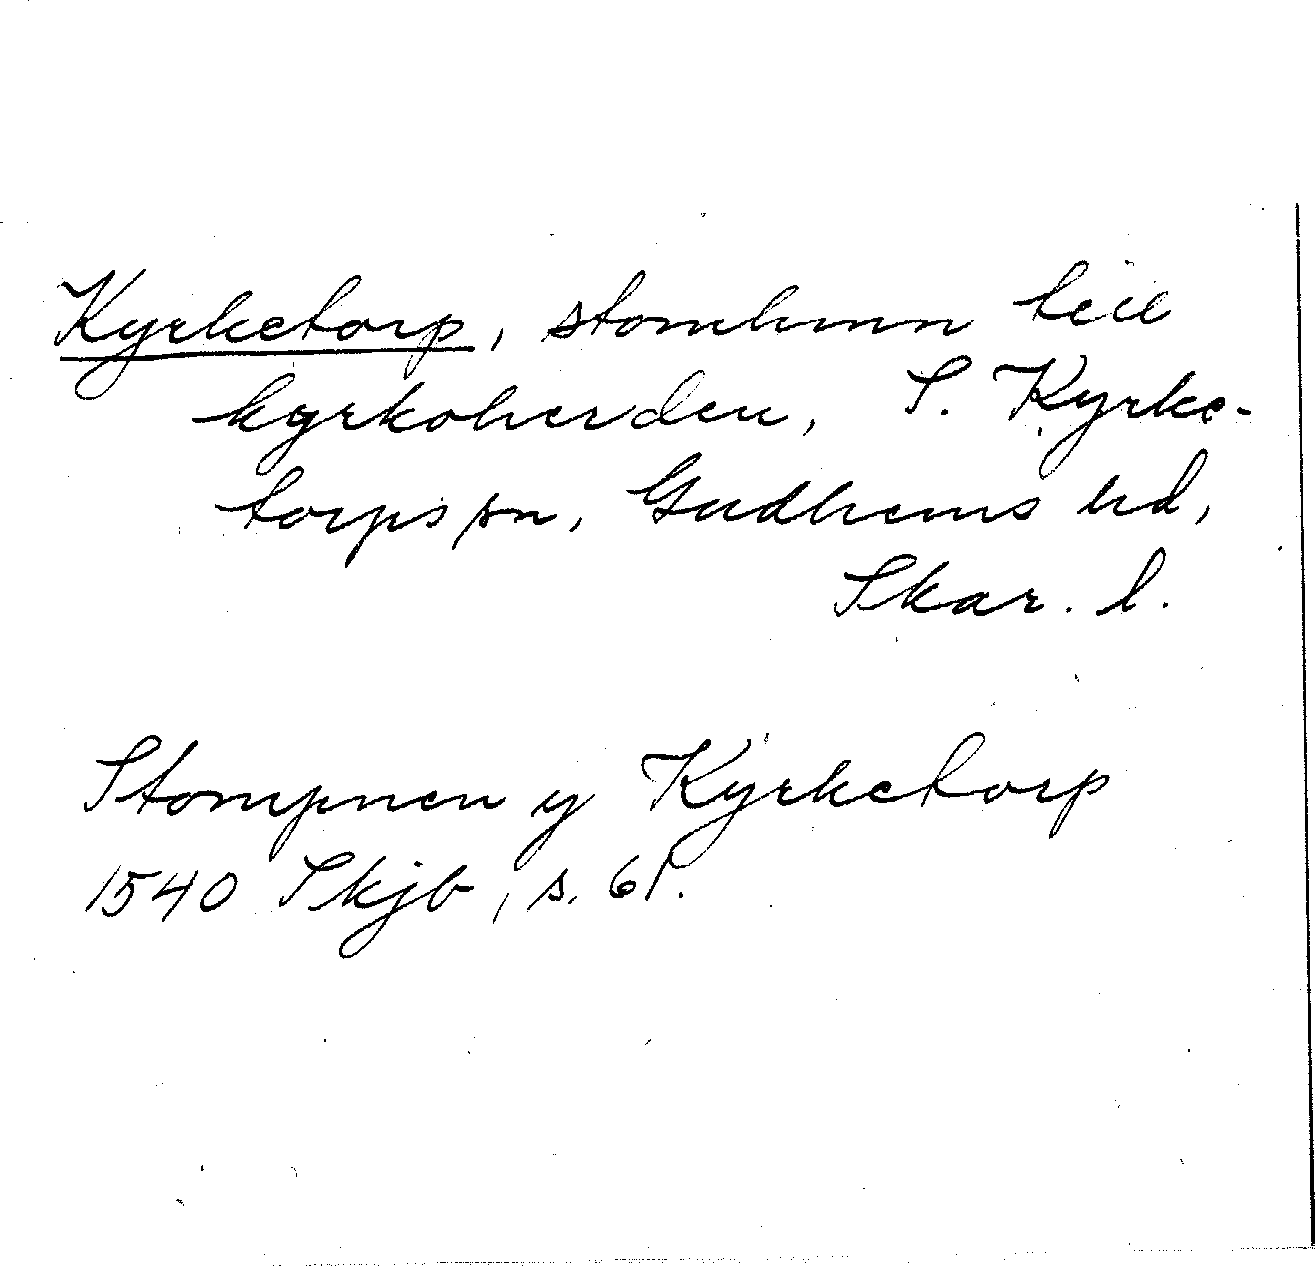 Kyrketorp, stomhmn till
kyrkoherden, S. Kyrke-
torps sn, Gudhems hd,
Skar. l.
Stompnen y Kyrketorp
1540 Skjb, s. 61.